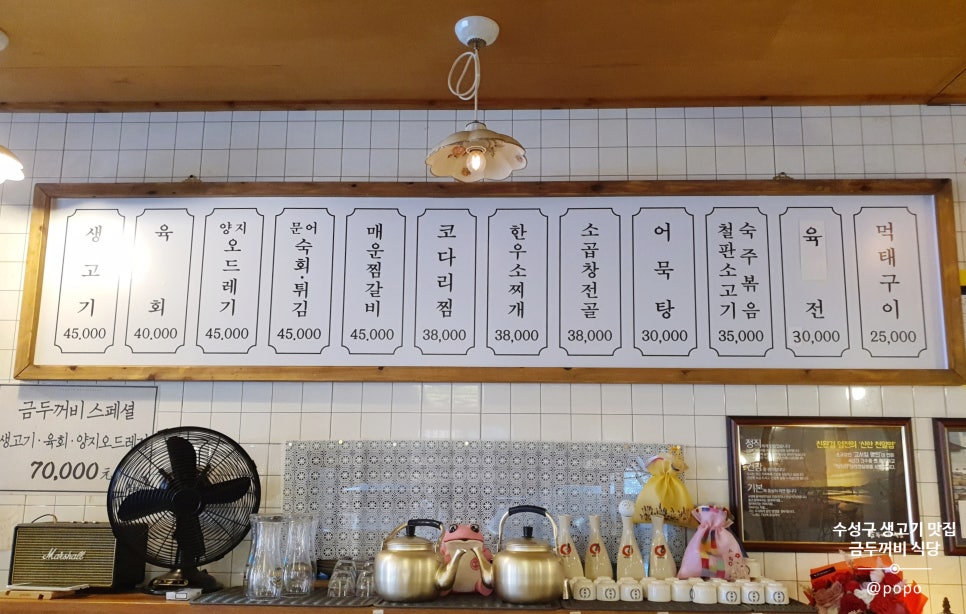 생고기
45,000
육회
40,000
양지
오드레기
45,000
문어
숙회·튀김
45,000
매운찜갈비
45,000
코다리찜
38,000
한우소찌개
38,000
소곱창전골
38,000
어묵탕
30,000
철판소고기
숙주볶음
35,000
육전
30,000
먹태구이
25,000
금두꺼비 스페셜
생고기·육회·양지오드레기
70,000
Marshall
정직
신선
기본
수성구 생고기 맛집
금두꺼비 식당
@popo